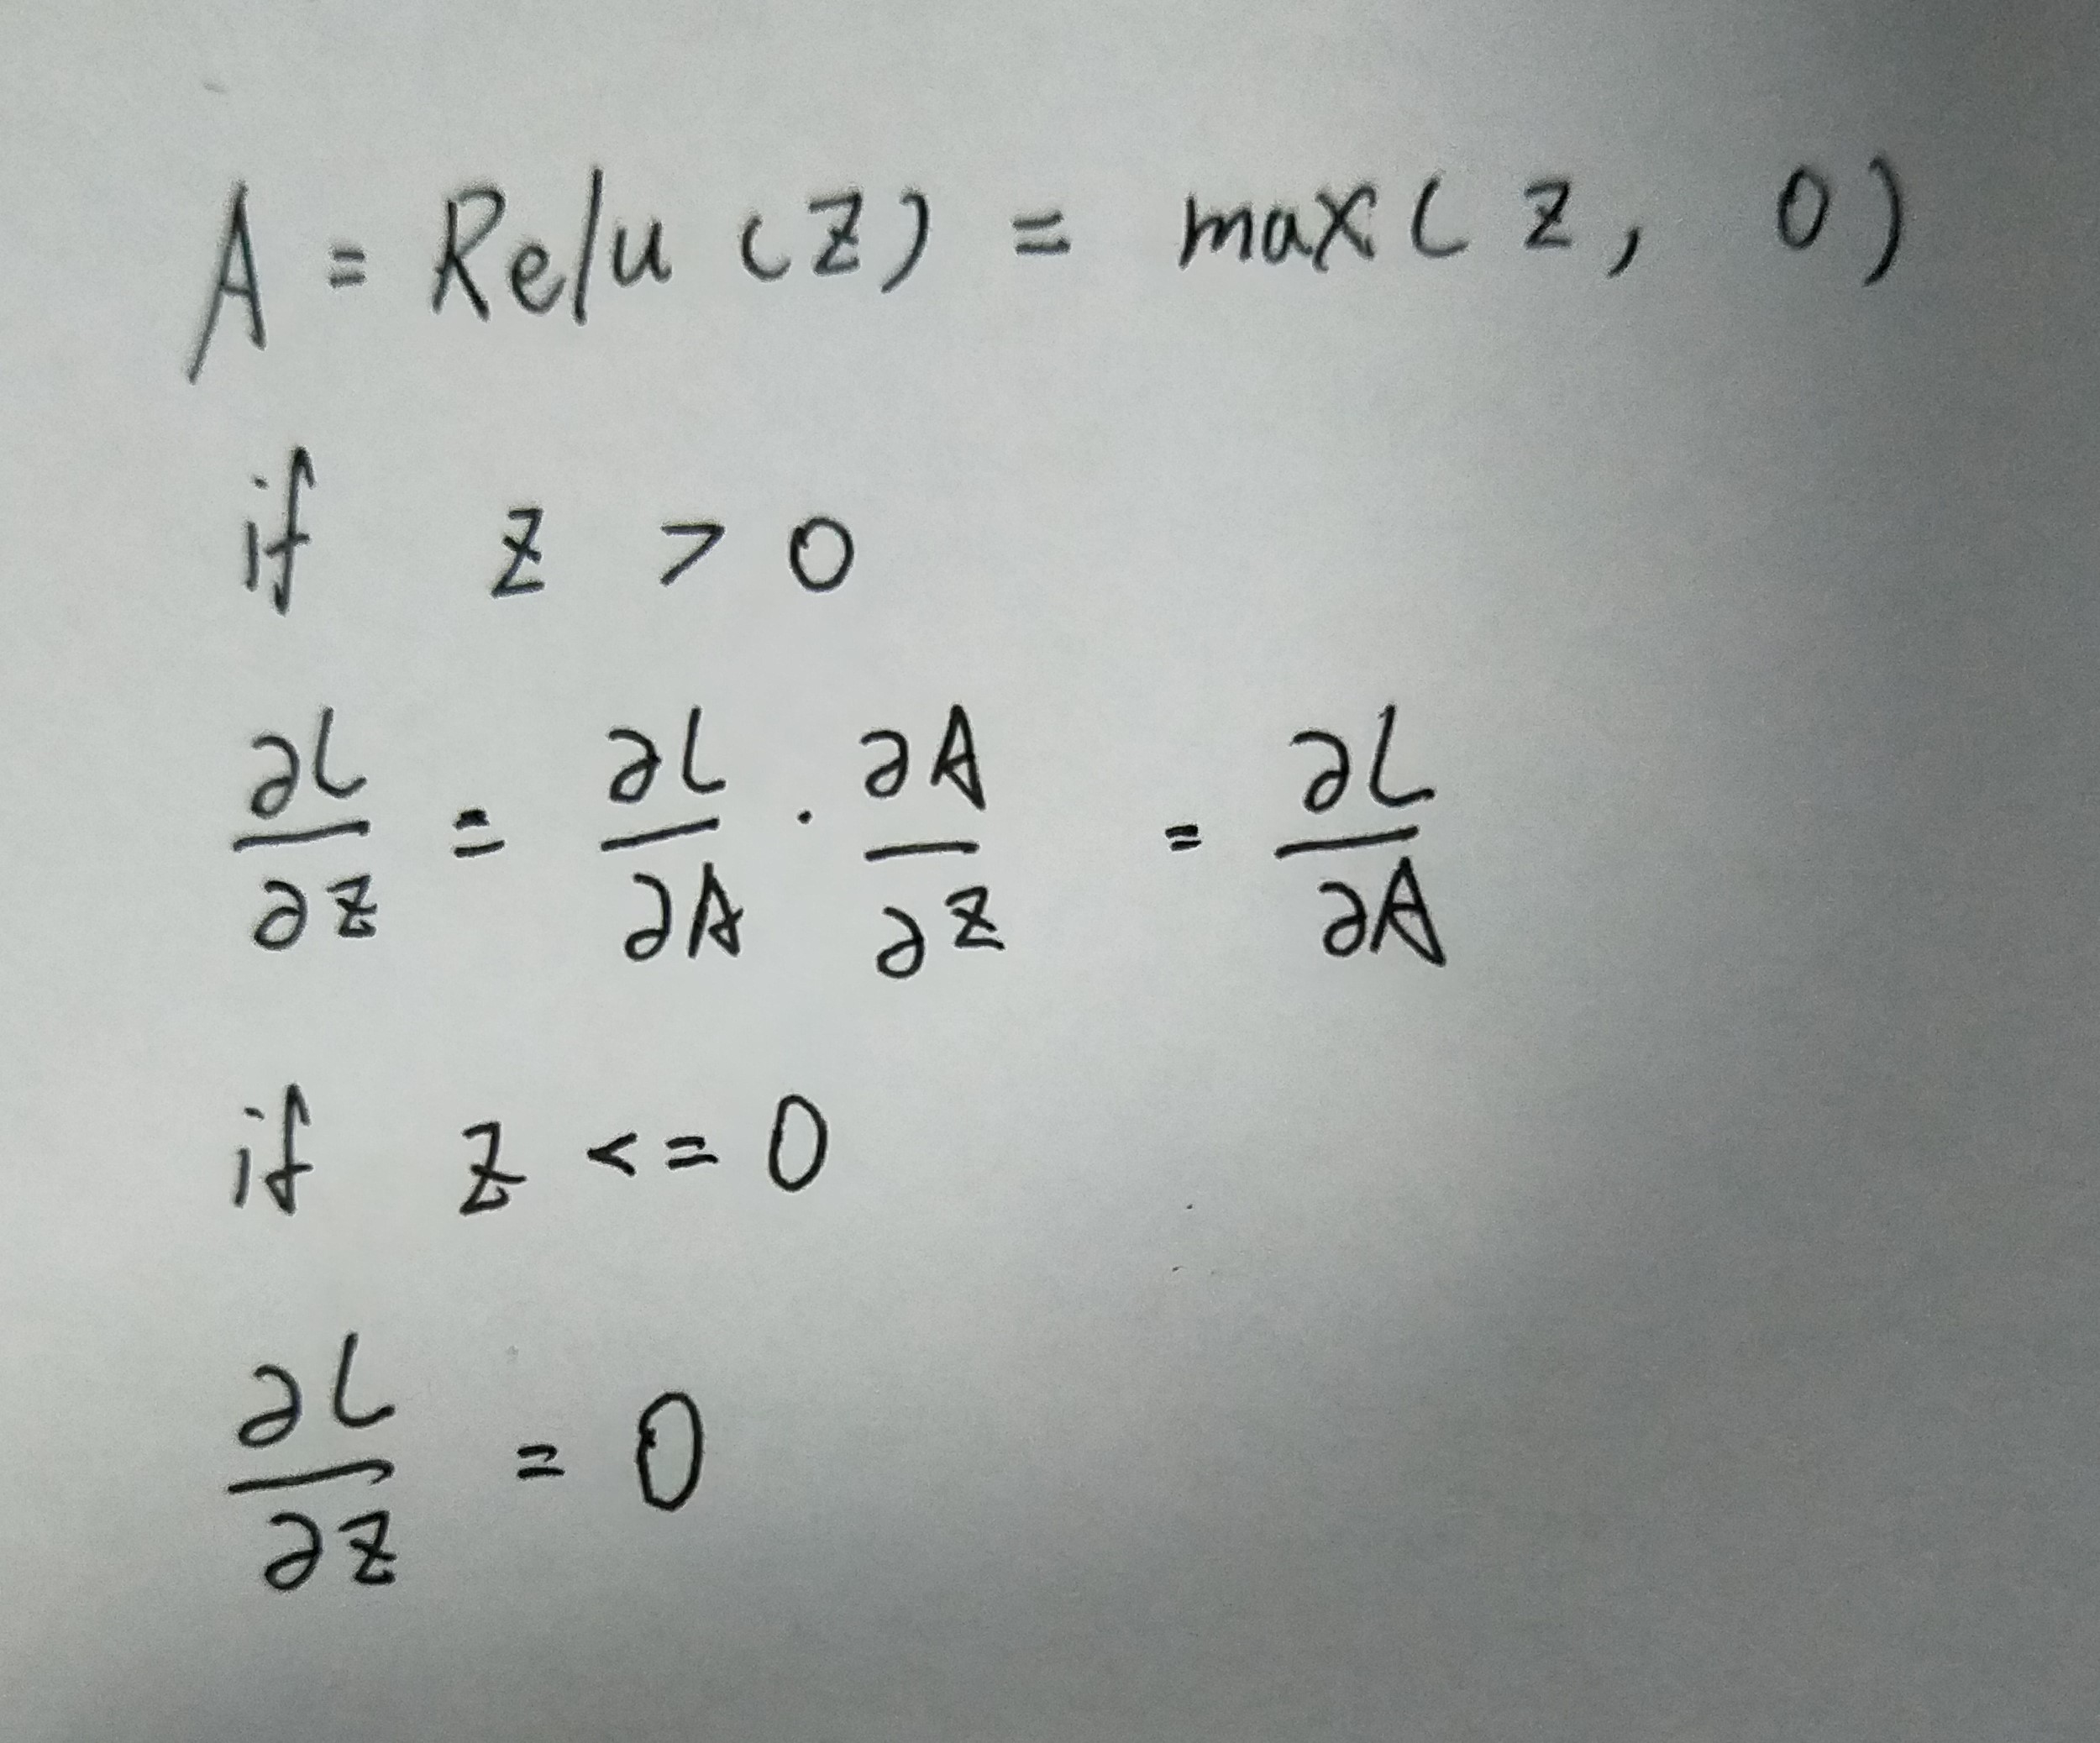 A = Relu (Z) = max( z, 0)
if z > 0
∂L/∂z = ∂L/∂A · ∂A/∂z = ∂L/∂A
if z <= 0
∂L/∂z = 0